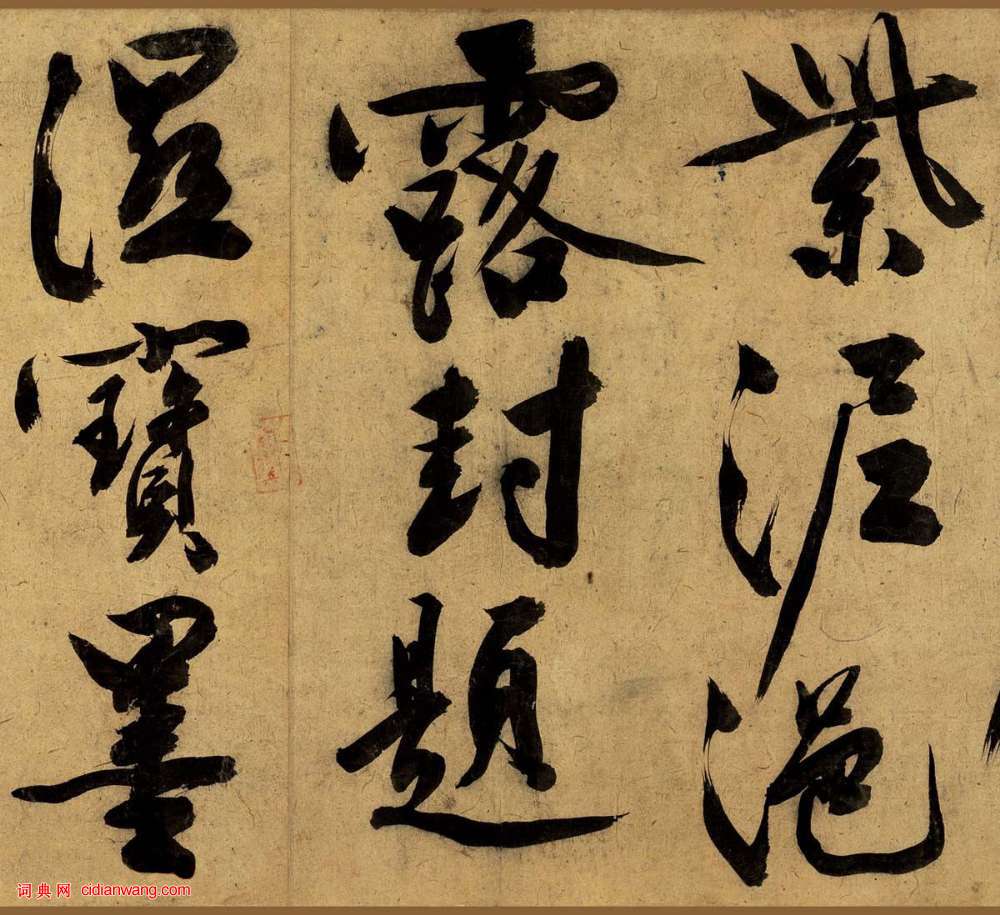 紫泥浥
露封題
濕寶墨
词典网 cidianwang.com